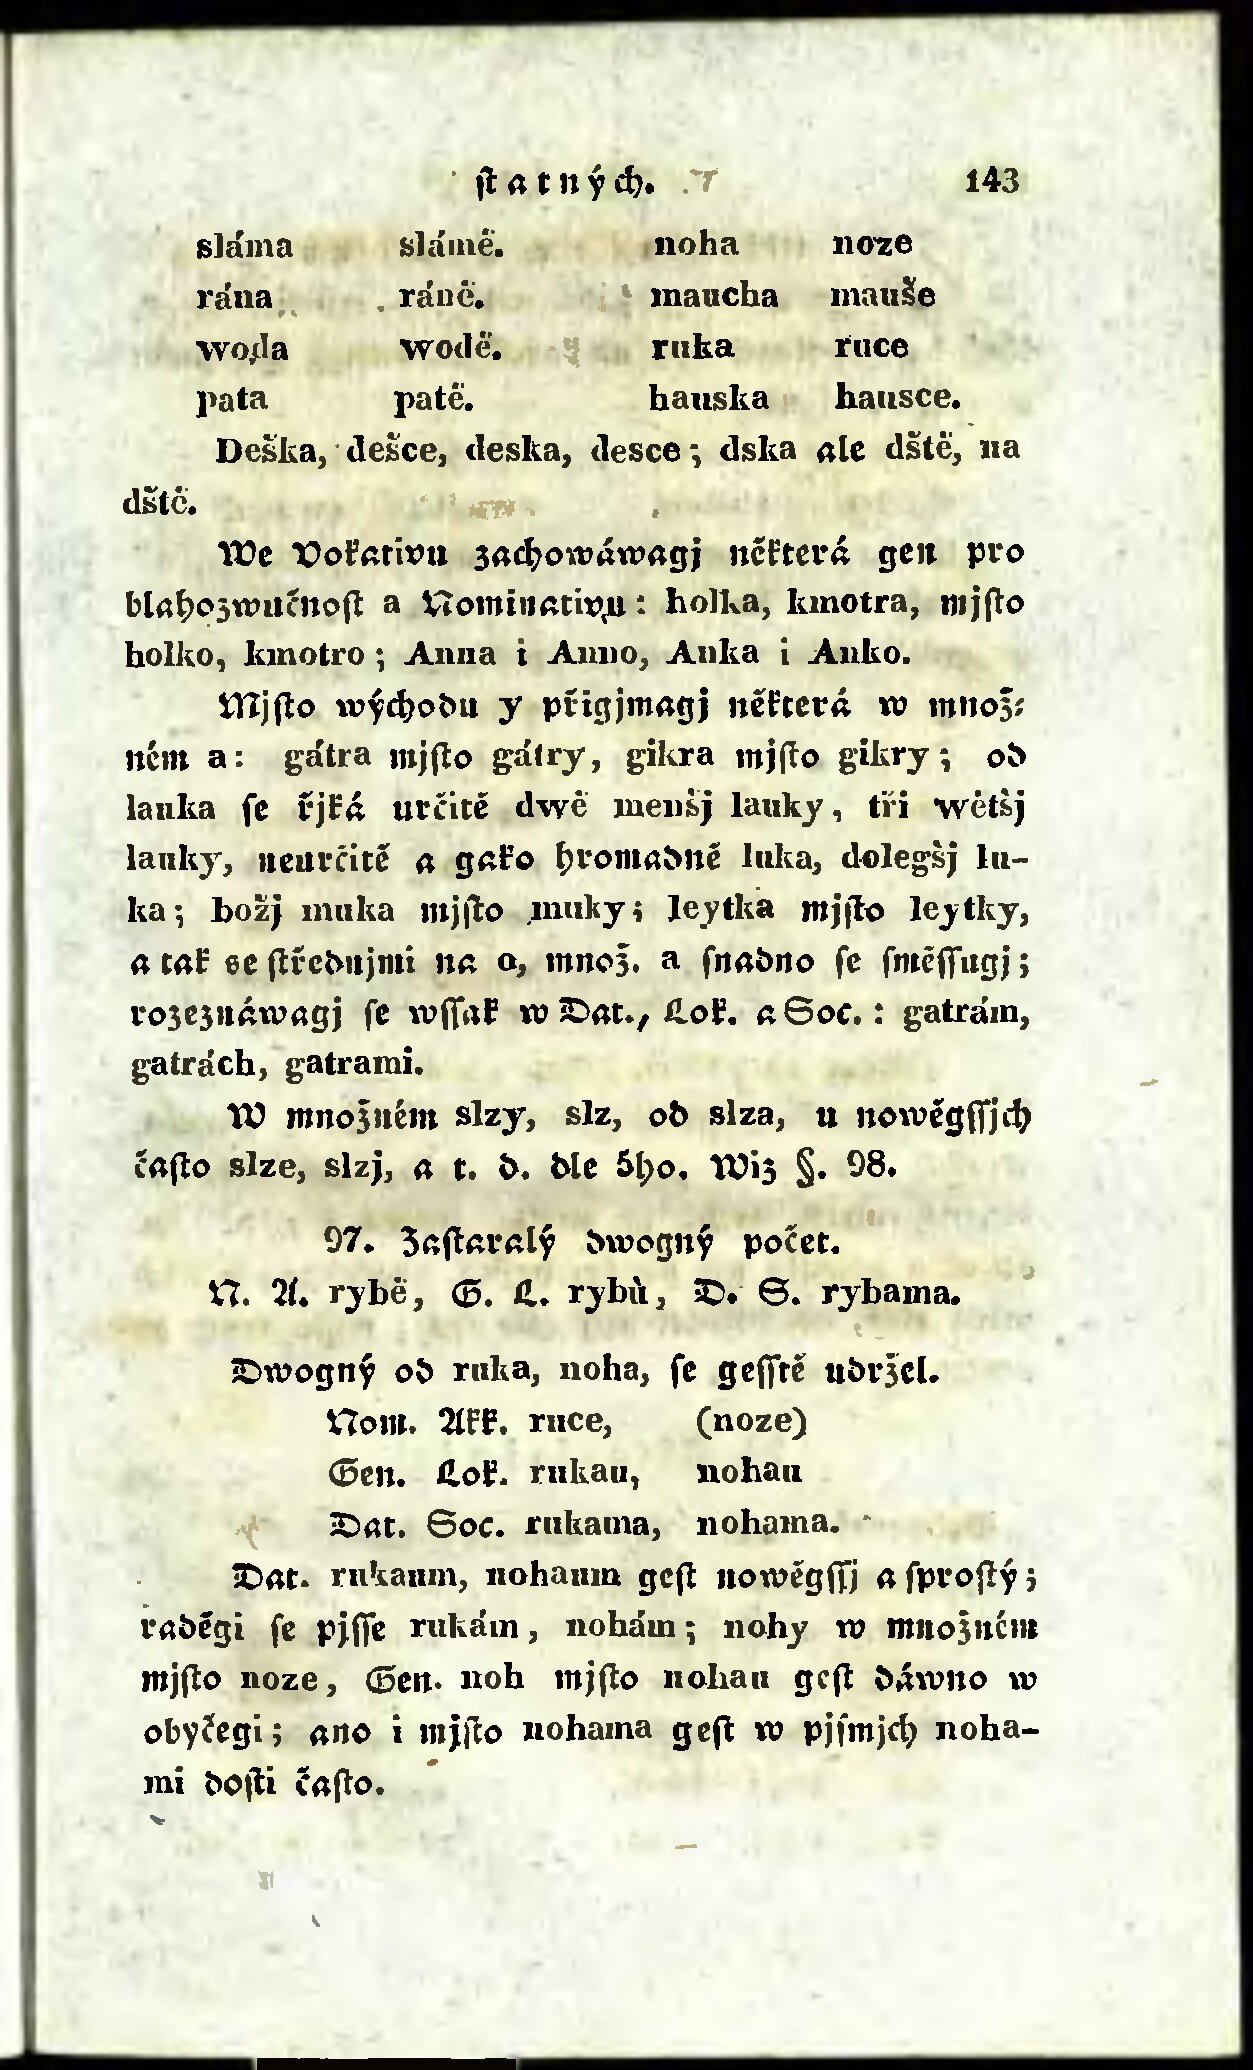 ſtatných. 143
sláma slámě. noha noze
rána ráně. maucha mauše
woda wodě. ruka ruce
pata patě. hauska hausce.
Deška, dešce, deska, desce; dska ale dště, na
dště.
We Vokativu zachowáwagj některá gen pro
blahozwučnoſt a Nominativu: holka, kmotra, mjſto
holko, kmotro; Anna i Anno, Anka i Anko.
Mjſto wýchodu y přigjmagj některá w množ⸗
ném a: gátra mjſto gátry, gikra mjſto gikry; od
lauka ſe řjká určitě dwě menšj lauky, tři wětšj
lauky, neurčitě a gako hromadně luka, dolegšj lu-
ka; božj muka mjſto muky; leytka mjſto leytky,
a tak se ſtředujmi na o, množ. a ſnadno ſe ſměſſugj;
rozeznáwagj ſe wſſak w Dat., Lok. a Soc.: gatrám,
gatrách, gatrami.
W množném slzy, slz, od slza, u nowěgſſjch
čaſto slze, slzj, a t. d. dle 5ho. Wiz §. 98.
97. Zaſtaralý dwogný počet.
N. A. rybě, G. L. rybù, D. S. rybama.
Dwogný od ruka, noha, ſe geſſtě udržel.
Nom. Akk. ruce, (noze)
Gen. Lok. rukau, nohau
Dat. Soc. rukama, nohama.
Dat. rukaum, nohaum geſt nowěgſſj a ſproſtý;
raděgi ſe pjſſe rukám, nohám; nohy w množném
mjſto noze, Gen. noh mjſto nohau geſt dáwno w
obyčegi; ano i mjſto nohama geſt w pjſmjch noha-
mi doſti čaſto.